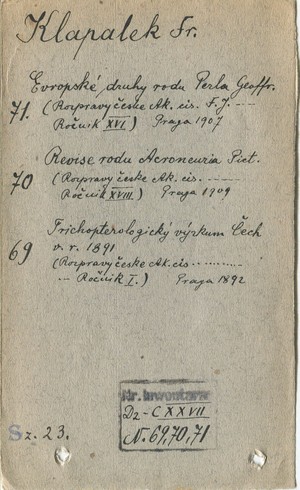 Klapalek Fr.
Evropské druhy rodu Perla Geoffr.
71. (Rozpravy české Ak. cis. F. J. — —
Ročnik XVI) Praga 1907
Revise rodu Acroneuria Pict.
70 (Rozpravy české Ak. cis. — — —
Ročnik XVIII.) Praga 1909
Trichopterologický výzkum Čech
69 v. r. 1891
(Rozpravy české Ak. cis . . . . . . . . .
— Ročnik I.) Praga 1892
Nr. inwentarz
Dz-CXXVII
Sz. 23. N. 69,70,71